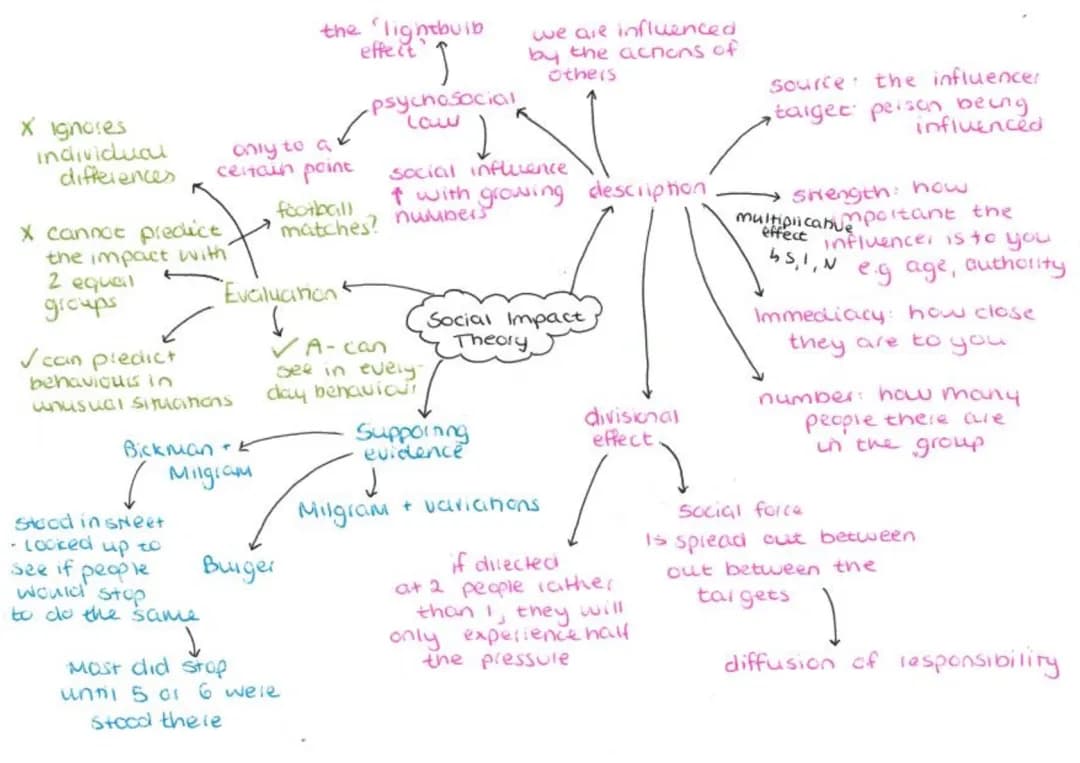 Social Impact
Theory
description
we are influenced
by the actions of
others
psychosocial
law
the 'lightbulb
effect'
only to a
certain point
social influence
↑ with growing
numbers
source: the influencer
target: person being
influenced
strength: how
important the
influencer is to you
e.g age, authority
multiplicative
effect
↳ S, I, N
Immediacy: how close
they are to you
number: how many
people there are
in the group
divisional
effect
if directed
at 2 people rather
than 1, they will
only experience half
the pressure
social force
is spread out between
out between the
targets
diffusion of responsibility
Evaluation
X ignores
individual
differences
X cannot predict
the impact with
2 equal
groups
football
matches?
✓ can predict
behaviours in
unusual situations
✓ A - can
see in every-
day behaviour
Supporting
evidence
Bickman +
Milgram
stood in street
- looked up to
see if people
would stop
to do the same
Most did stop
until 5 or 6 were
stood there
Burger
Milgram + variations